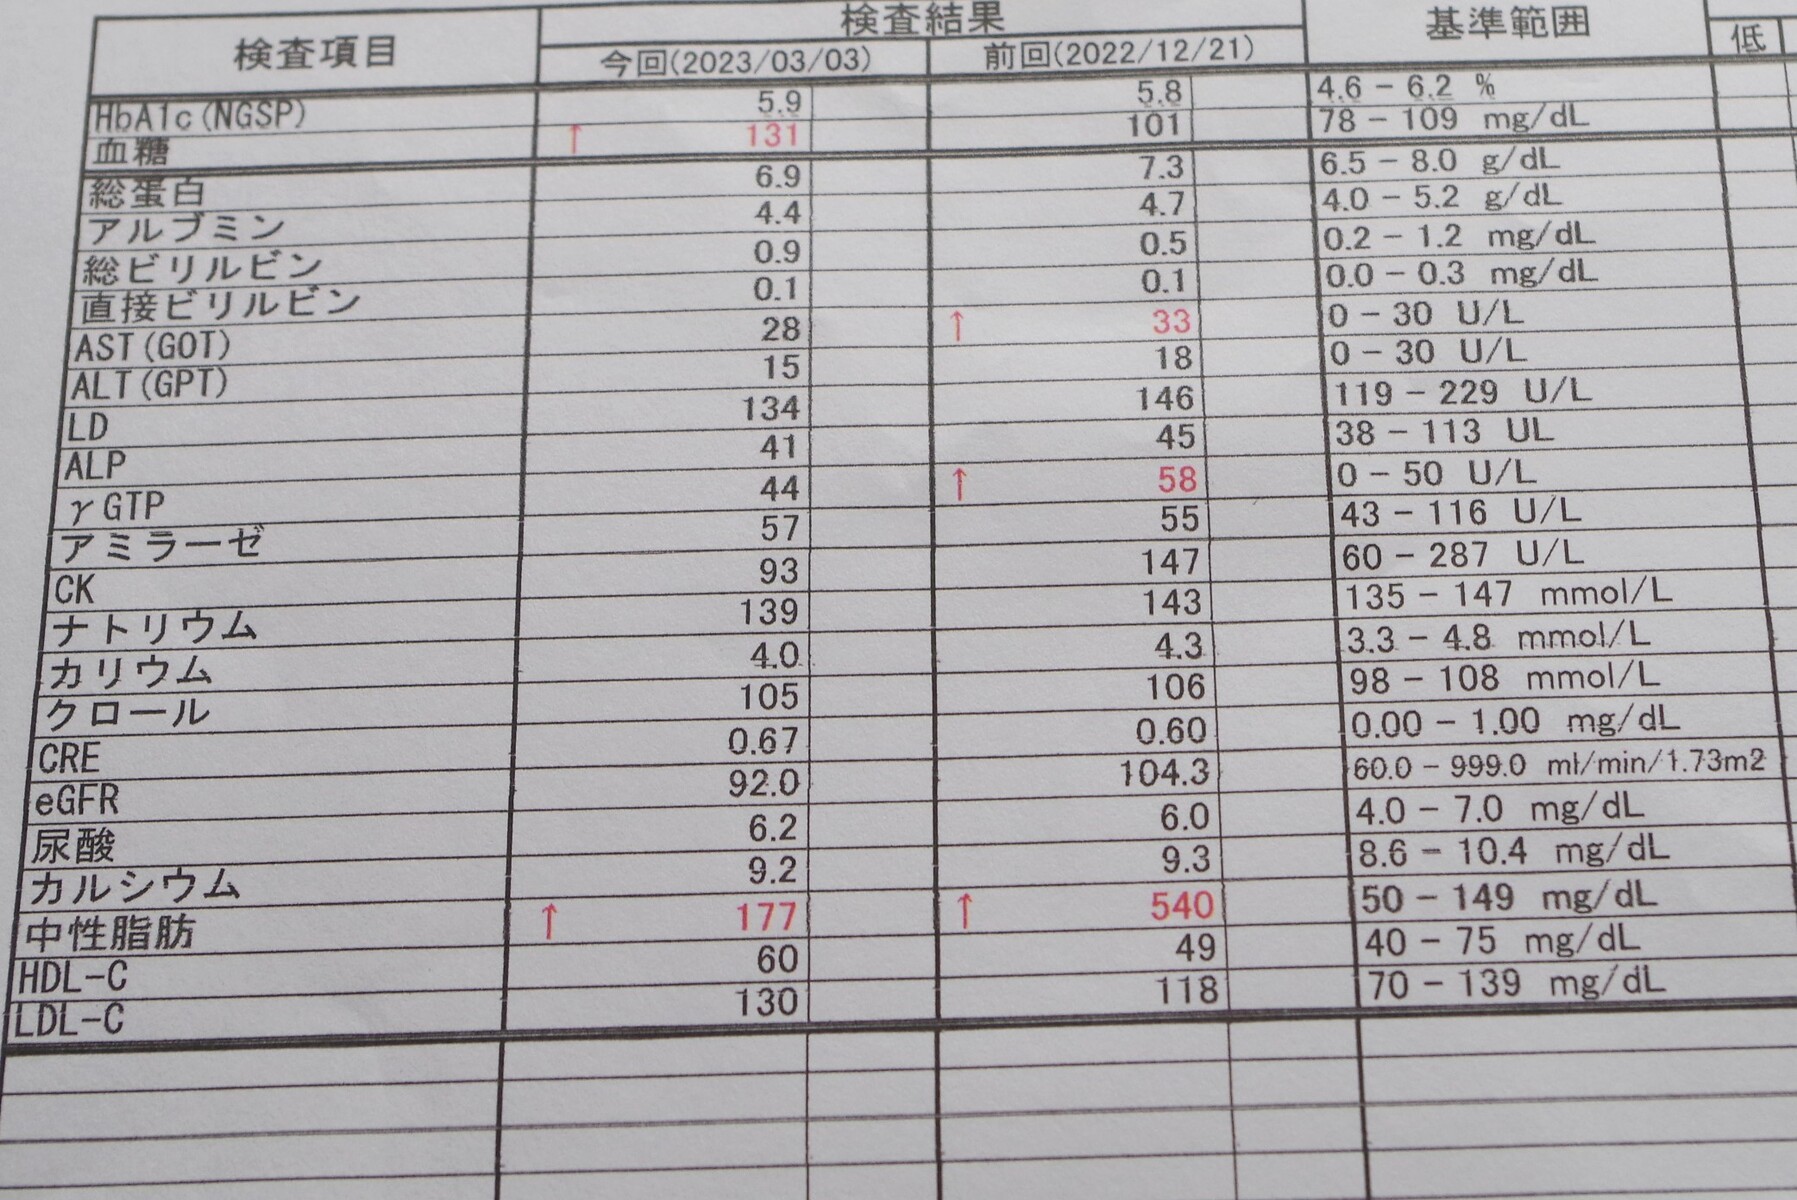 検査項目 検査結果 基準範囲
今回(2023/03/03) 前回(2022/12/21) 低
HbA1c(NGSP) 5.9 5.8 4.6 - 6.2 %
血糖 ↑ 131 101 78 - 109 mg/dL
総蛋白 6.9 7.3 6.5 - 8.0 g/dL
アルブミン 4.4 4.7 4.0 - 5.2 g/dL
総ビリルビン 0.9 0.5 0.2 - 1.2 mg/dL
直接ビリルビン 0.1 0.1 0.0 - 0.3 mg/dL
AST(GOT) 28 ↑ 33 0 - 30 U/L
ALT(GPT) 15 18 0 - 30 U/L
LD 134 146 119 - 229 U/L
ALP 41 45 38 - 113 UL
γGTP 44 ↑ 58 0 - 50 U/L
アミラーゼ 57 55 43 - 116 U/L
CK 93 147 60 - 287 U/L
ナトリウム 139 143 135 - 147 mmol/L
カリウム 4.0 4.3 3.3 - 4.8 mmol/L
クロール 105 106 98 - 108 mmol/L
CRE 0.67 0.60 0.00 - 1.00 mg/dL
eGFR 92.0 104.3 60.0 - 999.0 ml/min/1.73m2
尿酸 6.2 6.0 4.0 - 7.0 mg/dL
カルシウム 9.2 9.3 8.6 - 10.4 mg/dL
中性脂肪 ↑ 177 ↑ 540 50 - 149 mg/dL
HDL-C 60 49 40 - 75 mg/dL
LDL-C 130 118 70 - 139 mg/dL